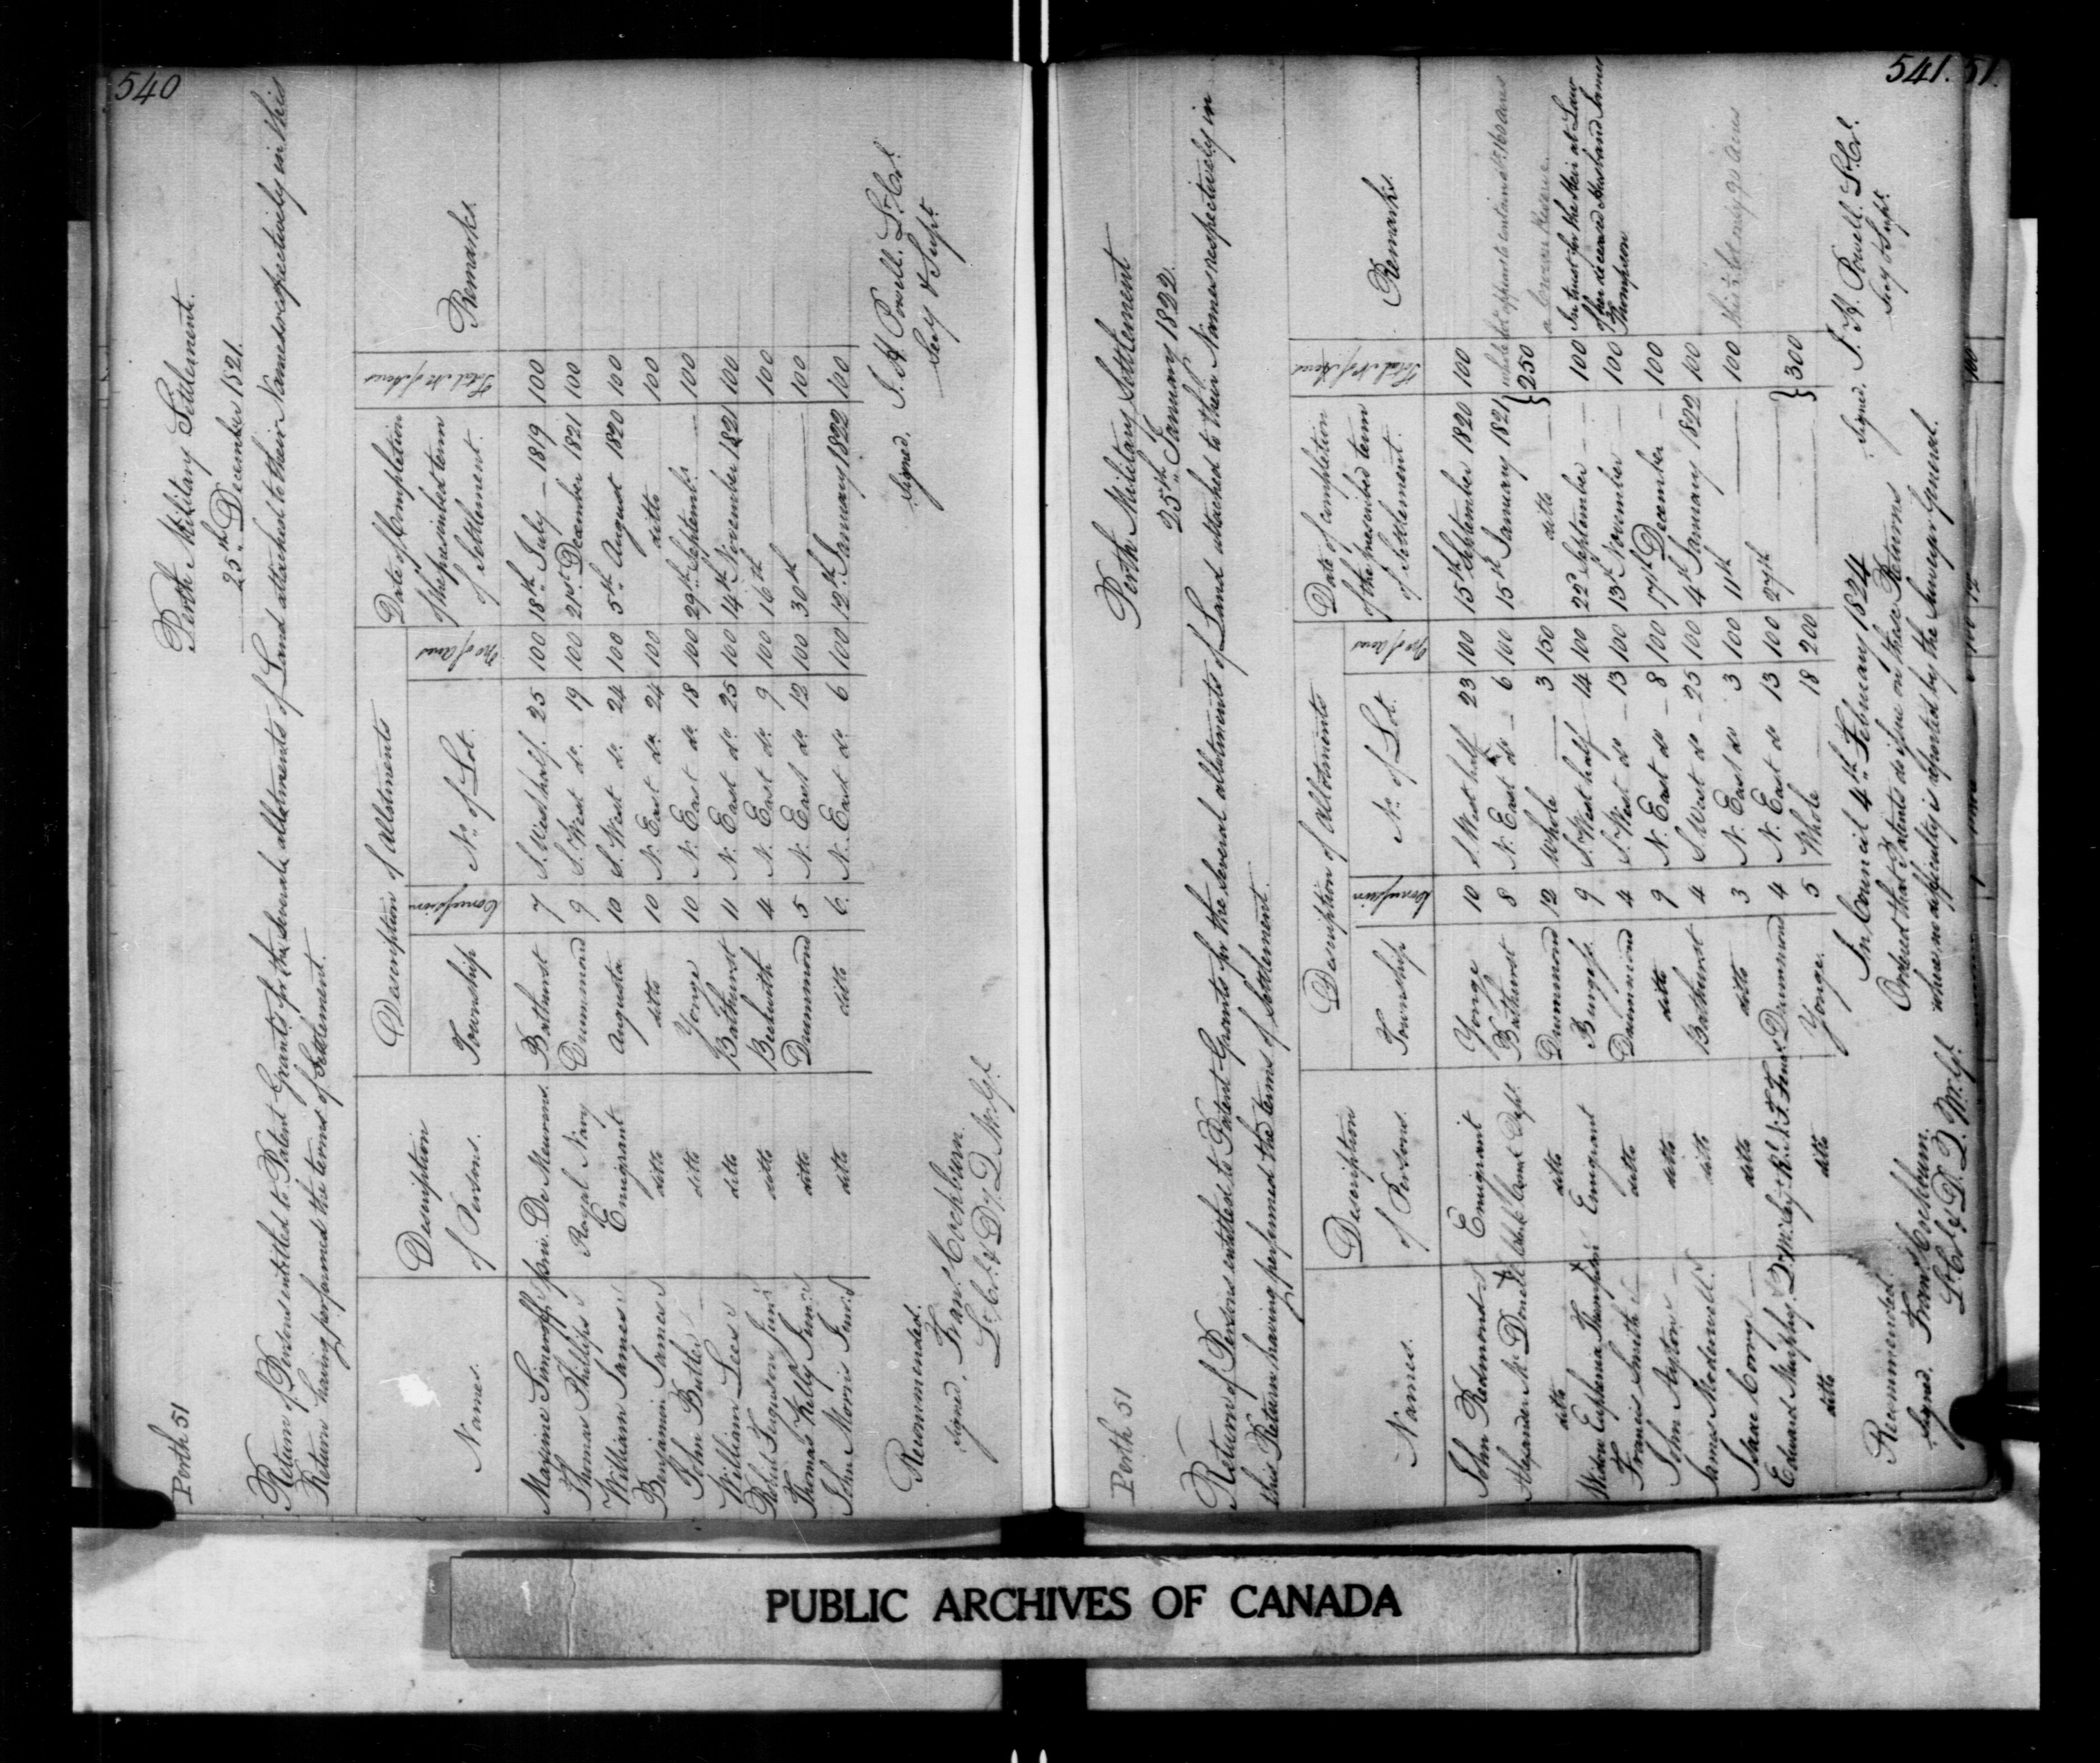 540
Perth 51
Perth Military Settlement.
25th December 1821.
Return of Persons entitled to Patent Grants for the several allotments of Land attached to their Names respectively in this
Return having performed the terms of Settlement.
Names. Description of Persons. Description of Allotments Date of Completion of the prescribed term of Settlement. Total No of Acres Remarks.
Township Concession No. of Lot. No of Acres
Thomas Phillips Royal Navy Drummond 9 S. West do. 19 100 21st December 1821 100
William James Emigrant Augusta 10 S. West do. 24 100 5th August 1820 100
Benjamin James ditto ditto 10 N. East do. 24 100 ditto 100
John Butler ditto Yonge 10 N. East do 18 100 29th Septembr. 100
William Lees ditto Bathurst 11 N. East do. 25 100 14th November 1821 100
Robert Ferguson Junr. ditto Beckwith 4 N. East do. 9 100 16th 100
Thomas Kelly Junr. ditto Drummond 5 N. East do. 12 100 30th 100
John Morris Junr. ditto ditto 6 N. East do. 6 100 12th January 1822 100
Recommended.
signed. Fran. Cockburn.
signed. J. H. Powell. Lt. Col.
Secy & Supt.
541. 51.
Perth 51
Perth Military Settlement
25th January 1822.
Return of Persons entitled to Patent Grants for the several allotments of Land attached to their Names respectively in
this Return having performed the terms of Settlement.
Names. Description of Persons. Description of Allotments Date of completion of the prescribed term of Settlement. Total No of Acres Remarks.
Township Concession No. of Lot. No of Acres
John Redmond Emigrant Yonge 10 S. West half 23 100 15th September 1820 100
Alexander McDonell Bathurst 8 N. East do 6 100 15th January 1821
ditto ditto Drummond 12 Whole 3 150 ditto 250 a Crown Reserve
Widow Euphemia Thompson Emigrant Burgess 9 S. West half 14 100 22d September 100 In trust for the Heir at Law of her deceased Husband James Thompson
Francis Smith ditto Drummond 4 S. West do 13 100 13th November 100
John ditto ditto 9 N. East do 8 100 17th December 100
James ditto Bathurst 4 S. West do 25 100 4th January 1822 100
ditto ditto 3 N. East do 3 100 11th 100
Edward Murphy Drummond 4 N. East do 13 100 27th
ditto ditto Yonge. 5 Whole 18 200 300
Recommended
signed. Fran. Cockburn.
Lt. Col. & D. Q. M. Gl.
signed. J. H. Powell. Lt. Col.
Secy & Supt.
In Council 4th February 1824
Ordered that Patents issue on these Returns
where no difficulty is reported by the Surveyor General.
PUBLIC ARCHIVES OF CANADA